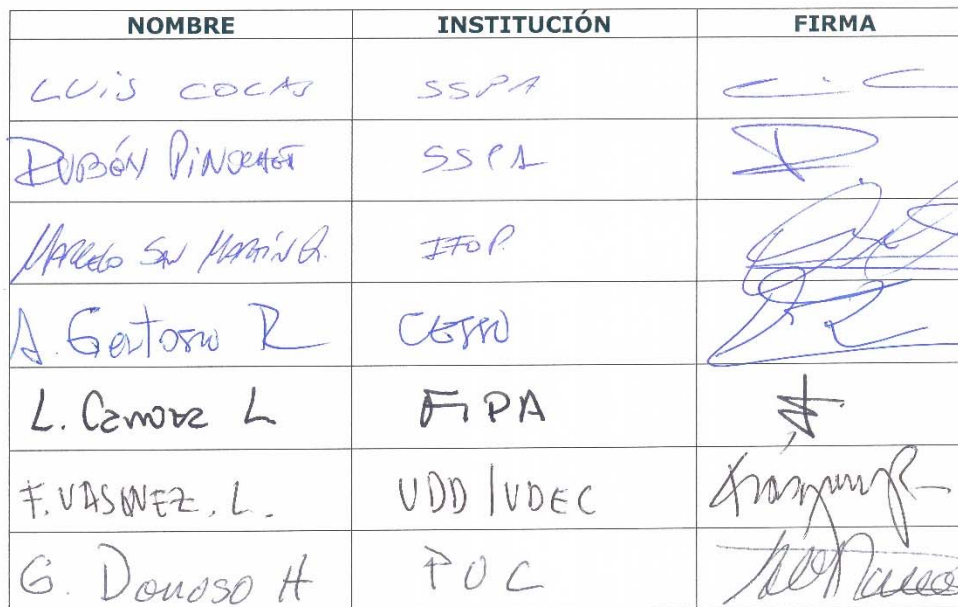 NOMBRE INSTITUCIÓN FIRMA
LUIS COCAS SSPA
RUBÉN PINOCHET SSPA
MARCELO SAN MARTÍN R. IFOP.
A. R CESSO
L. L FIPA
F. VASQUEZ. L. UDD/UDEC
G. Donoso H PUC